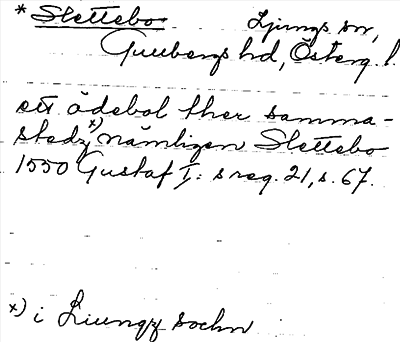 * Slettebo Ljungs sn,
Gullbergs hd, Österg. l.
ett ödebol ther samma-
stedz x) nämligen Slettebo
1550 Gustaf I: s reg. 21, s. 67.
x) i Liungz sochn